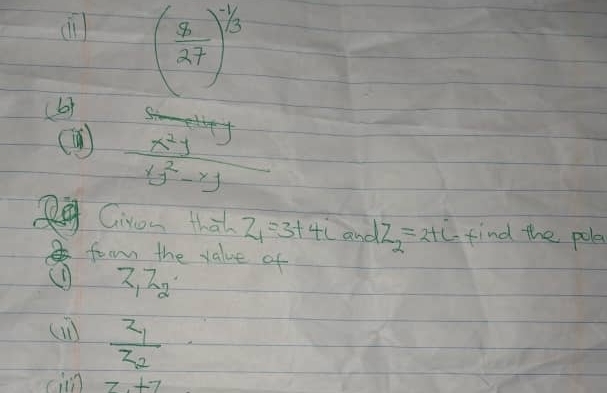 (ii) (8/27)^-1/3
(b)
(ii) x²y
xy² - xy
Given that Z₁=3+4i and Z₂=2+i find the pola
form the value of
(i) Z₁Z₂
(ii) Z₁
Z₂
(iii) Z₁+Z